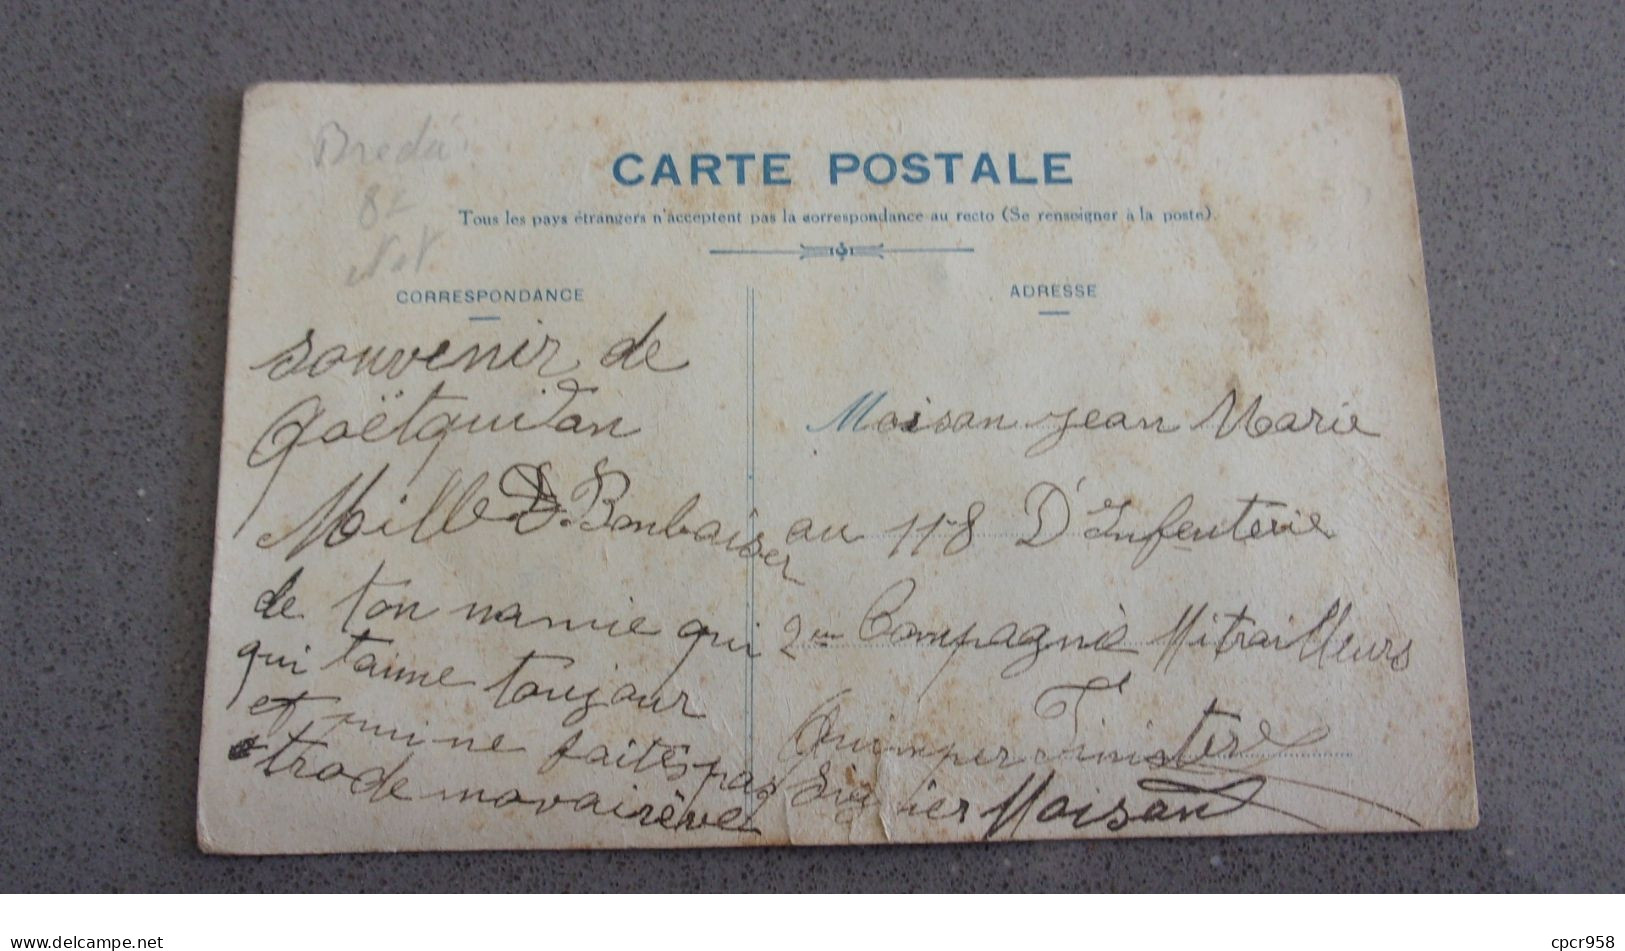 Breda
CARTE POSTALE
Tous les pays étrangers n'acceptent pas la correspondance au recto (Se renseigner à la poste).
CORRESPONDANCE
souvenir de
Qoëtquidan
Mille Bonbaiser
de ton namie qui
qui t'aime toujour
et mi ne faites pas
trode movairêve
ADRESSE
Moisan Jean Marie
au 118 D'Infenterie
2em Compagnie Mitrailleurs
Quimper Finistere
Moisan
delcampe.net
cpcr958